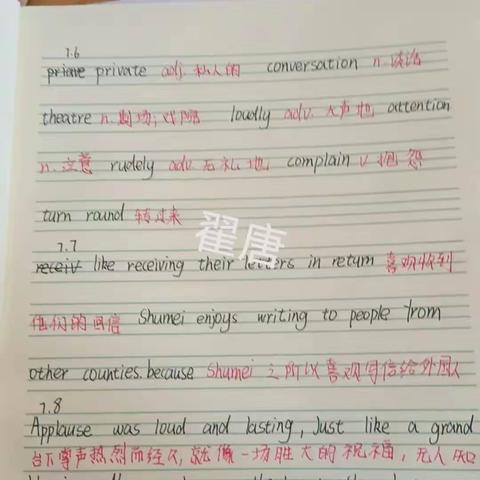 7.6
priave private adj. 私人的 conversation n.谈话
theatre n.剧场;戏院 loudly adv. 大声地 attention
n.注意 rudely adv.无礼地 complain v.抱怨
turn round 转过来
翟唐
7.7
receiv like receiving their letters in return 喜欢收到
他们的回信 Shumei enjoys writing to people from
other counties.because Shumei 之所以喜欢写信给外国人
7.8
Applause was loud and lasting, Just like a grand
台下掌声热烈而经久,就像一场胜大的祝福,无人